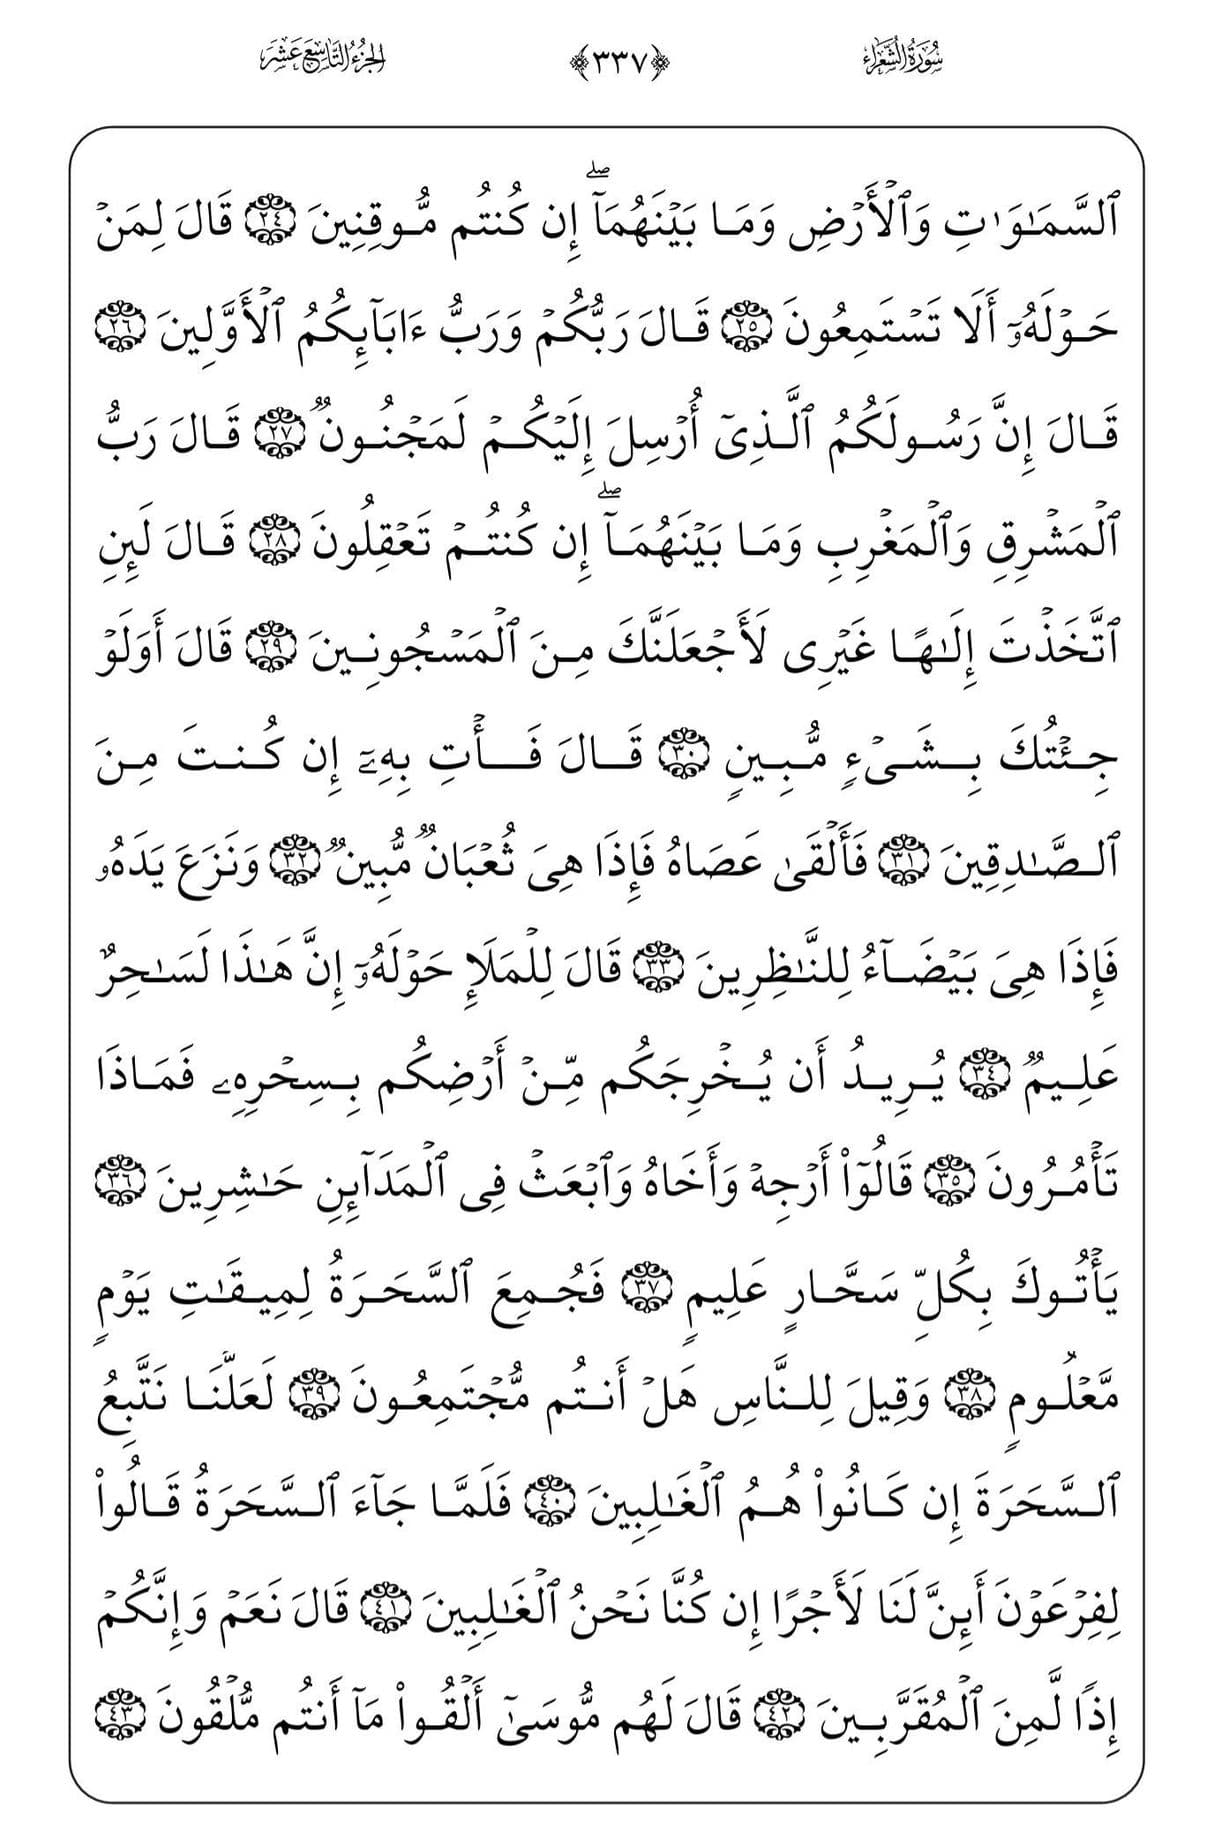 سُورَةُ الشُّعَرَاءِ ﴿٣٣٧﴾ الجُزْءُ التَّاسِعَ عَشَرَ
ٱلسَّمَـٰوَٰتِ وَٱلْأَرْضِ وَمَا بَيْنَهُمَآ ۖ إِن كُنتُم مُّوقِنِينَ ٢٤ قَالَ لِمَنْ
حَوْلَهُۥٓ أَلَا تَسْتَمِعُونَ ٢٥ قَالَ رَبُّكُمْ وَرَبُّ ءَابَآئِكُمُ ٱلْأَوَّلِينَ ٢٦
قَالَ إِنَّ رَسُولَكُمُ ٱلَّذِىٓ أُرْسِلَ إِلَيْكُمْ لَمَجْنُونٌ ٢٧ قَالَ رَبُّ
ٱلْمَشْرِقِ وَٱلْمَغْرِبِ وَمَا بَيْنَهُمَآ ۖ إِن كُنتُمْ تَعْقِلُونَ ٢٨ قَالَ لَئِنِ
ٱتَّخَذْتَ إِلَـٰهًا غَيْرِى لَأَجْعَلَنَّكَ مِنَ ٱلْمَسْجُونِينَ ٢٩ قَالَ أَوَلَوْ
جِئْتُكَ بِشَىْءٍ مُّبِينٍ ٣٠ قَالَ فَأْتِ بِهِۦٓ إِن كُنتَ مِنَ
ٱلصَّـٰدِقِينَ ٣١ فَأَلْقَىٰ عَصَاهُ فَإِذَا هِىَ ثُعْبَانٌ مُّبِينٌ ٣٢ وَنَزَعَ يَدَهُۥ
فَإِذَا هِىَ بَيْضَآءُ لِلنَّـٰظِرِينَ ٣٣ قَالَ لِلْمَلَإِ حَوْلَهُۥٓ إِنَّ هَـٰذَا لَسَـٰحِرٌ
عَلِيمٌ ٣٤ يُرِيدُ أَن يُخْرِجَكُم مِّنْ أَرْضِكُم بِسِحْرِهِۦ فَمَاذَا
تَأْمُرُونَ ٣٥ قَالُوٓا۟ أَرْجِهْ وَأَخَاهُ وَٱبْعَثْ فِى ٱلْمَدَآئِنِ حَـٰشِرِينَ ٣٦
يَأْتُوكَ بِكُلِّ سَحَّارٍ عَلِيمٍ ٣٧ فَجُمِعَ ٱلسَّحَرَةُ لِمِيقَـٰتِ يَوْمٍ
مَّعْلُومٍ ٣٨ وَقِيلَ لِلنَّاسِ هَلْ أَنتُم مُّجْتَمِعُونَ ٣٩ لَعَلَّنَا نَتَّبِعُ
ٱلسَّحَرَةَ إِن كَانُوا۟ هُمُ ٱلْغَـٰلِبِينَ ٤٠ فَلَمَّا جَآءَ ٱلسَّحَرَةُ قَالُوا۟
لِفِرْعَوْنَ أَئِنَّ لَنَا لَأَجْرًا إِن كُنَّا نَحْنُ ٱلْغَـٰلِبِينَ ٤١ قَالَ نَعَمْ وَإِنَّكُمْ
إِذًا لَّمِنَ ٱلْمُقَرَّبِينَ ٤٢ قَالَ لَهُم مُّوسَىٰٓ أَلْقُوا۟ مَآ أَنتُم مُّلْقُونَ ٤٣